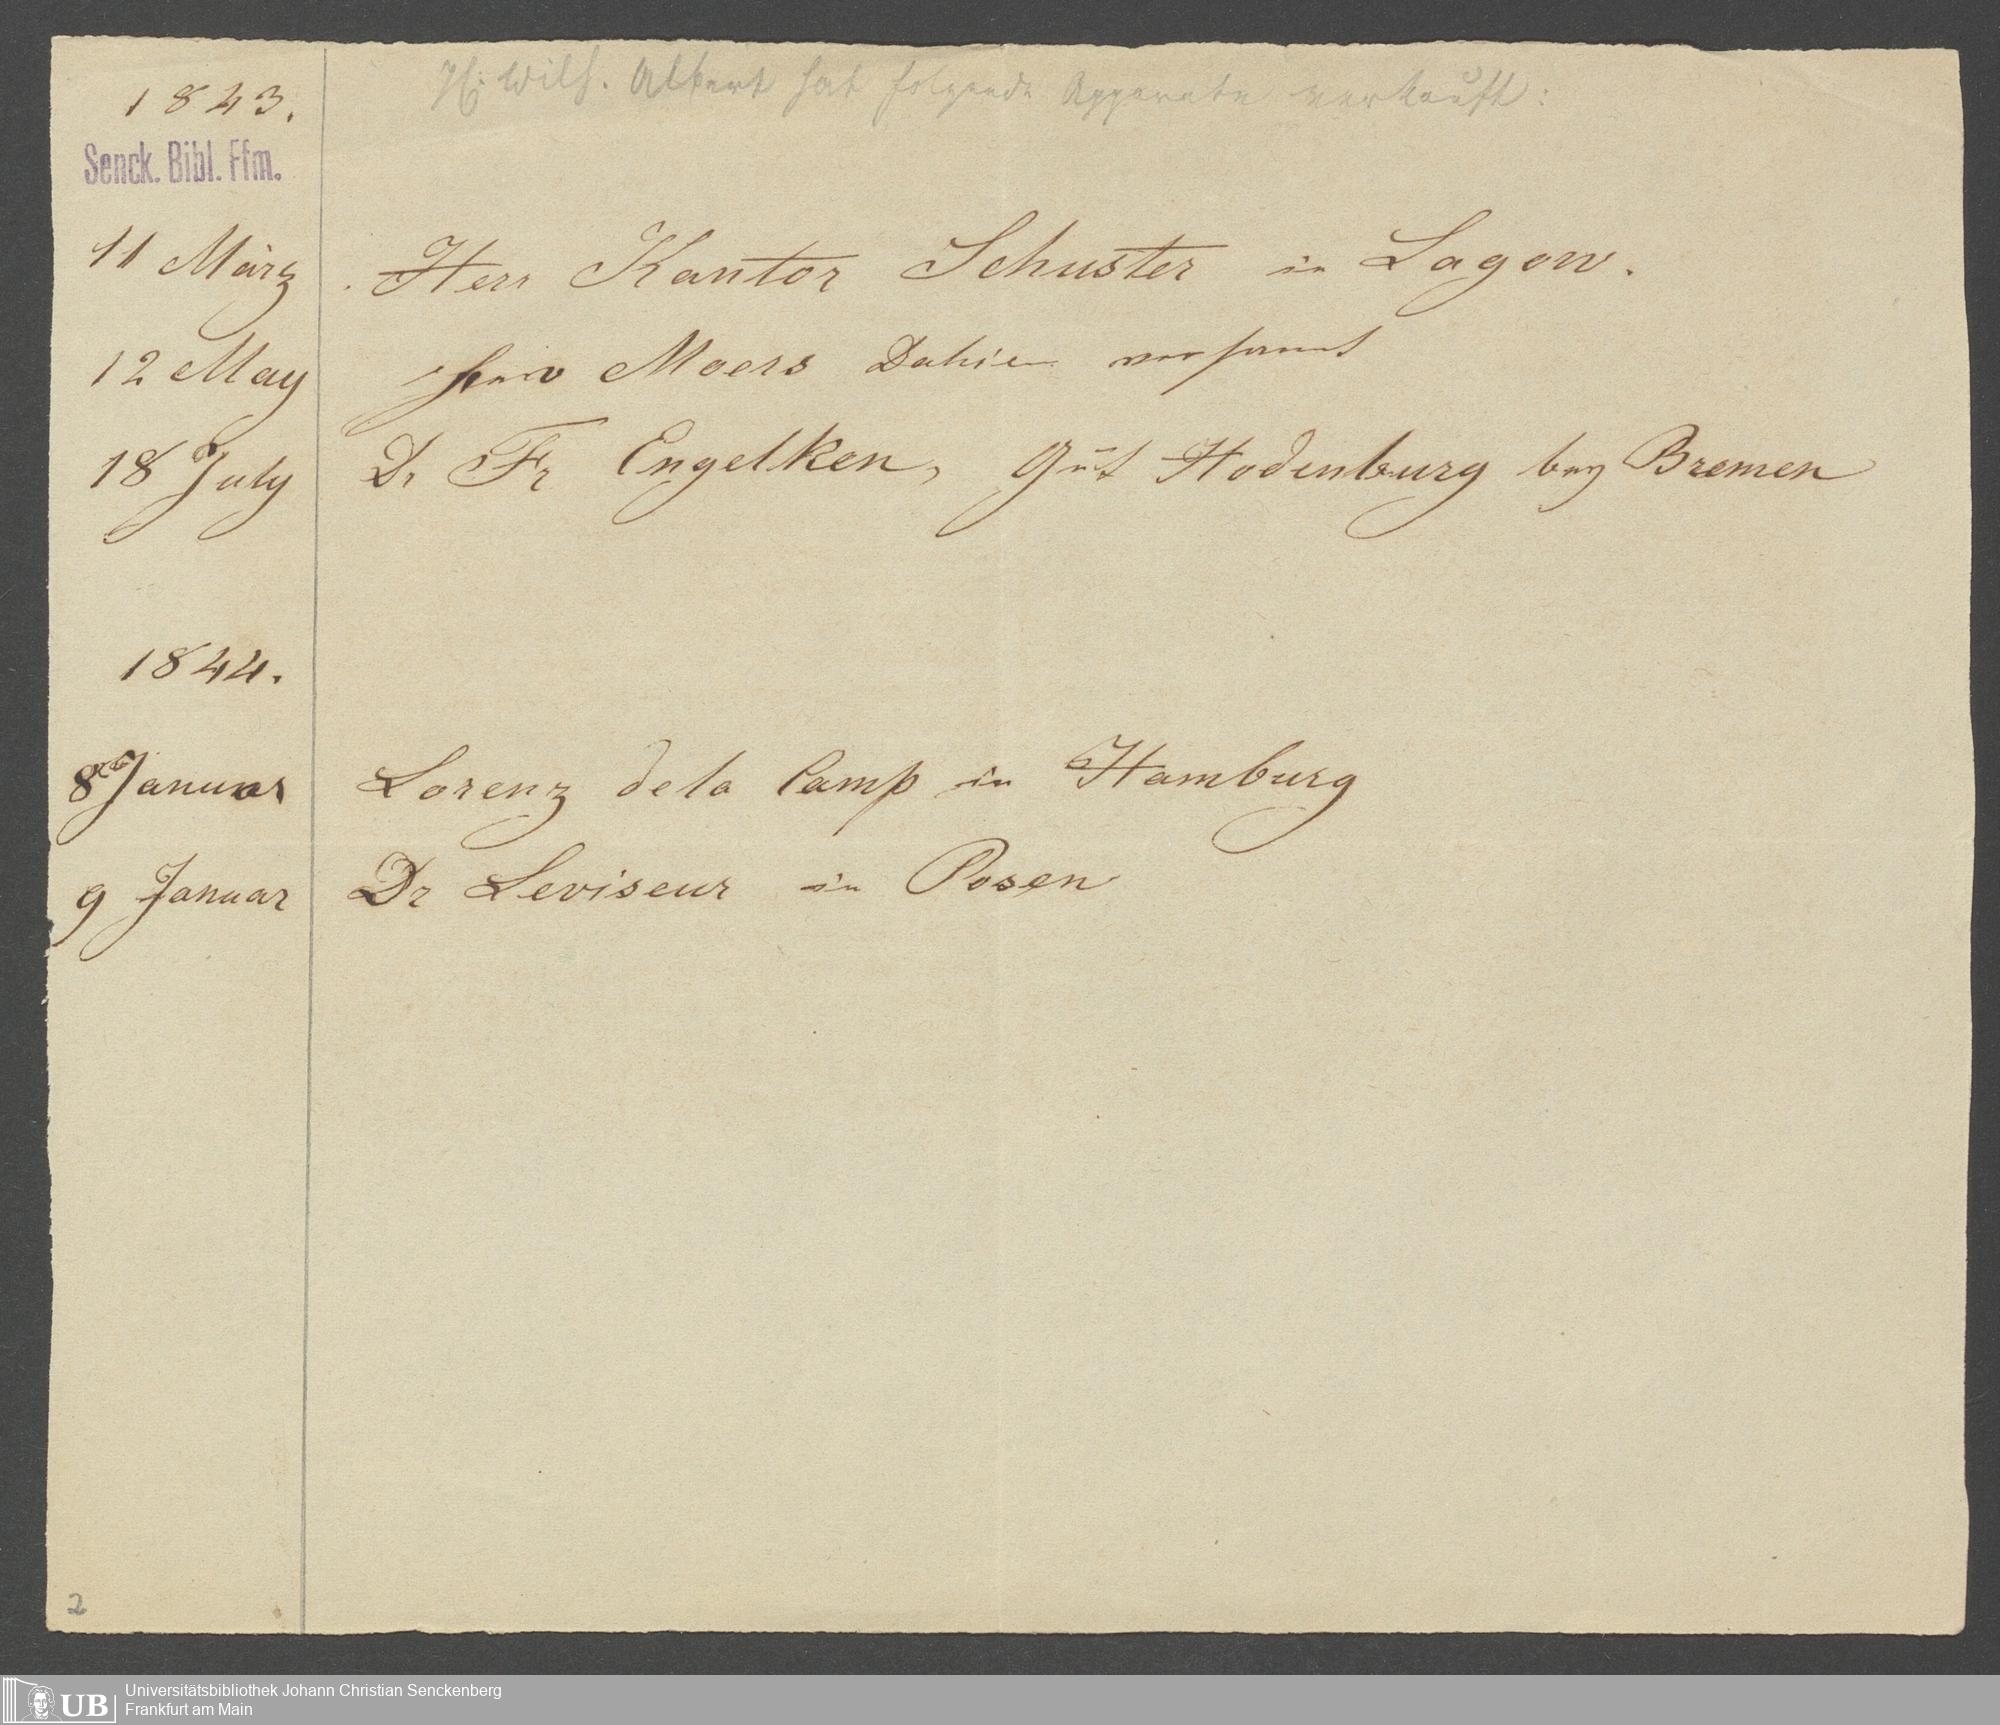 H. Wilh. Albert hat folgende Apparate verkauft:
1843.
Senck. Bibl. Ffm.
11 März Herr Kantor Schuster in Lagow.
12 May Herr Moers
18 July Dr Fr Engelken, Gut Hodenburg bey Bremen
1844.
8 Januar Lorenz de la Camp in Hamburg
9 Januar Dr Leviseur in Posen
2
UB
Universitätsbibliothek Johann Christian Senckenberg
Frankfurt am Main